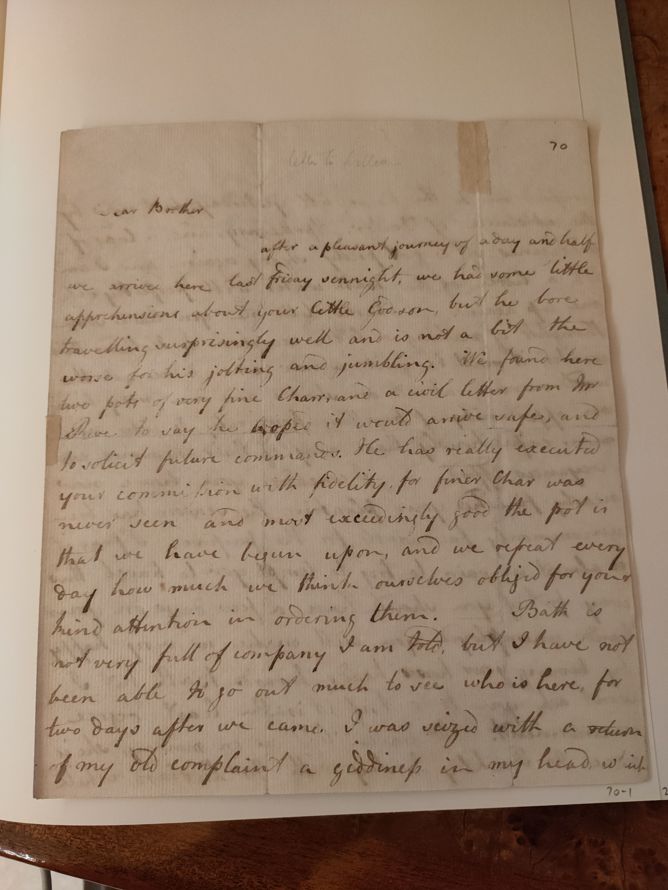 70
letter to
Dear Brother
after a pleasant journey of a day and half
we arrived here last Friday sennight, we had some little
apprehensions about your little Godson, but he bore
travelling surprisingly well and is not a bit the
worse for his jolting and jumbling. We found here
two pots of very fine Charr, and a civil letter from Mr
to say he hoped it would arrive safe, and
to solicit future commands. He has really executed
your commission with fidelity, for finer Char was
never seen and most exceedingly good the pot is
that we have begun upon, and we repeat every
day how much we think ourselves obliged for your
kind attention in ordering them. Bath is
not very full of company I am told, but I have not
been able to go out much to see who is here, for
two days after we came. I was seized with a return
of my old complaint a giddiness in my head
70-1
2